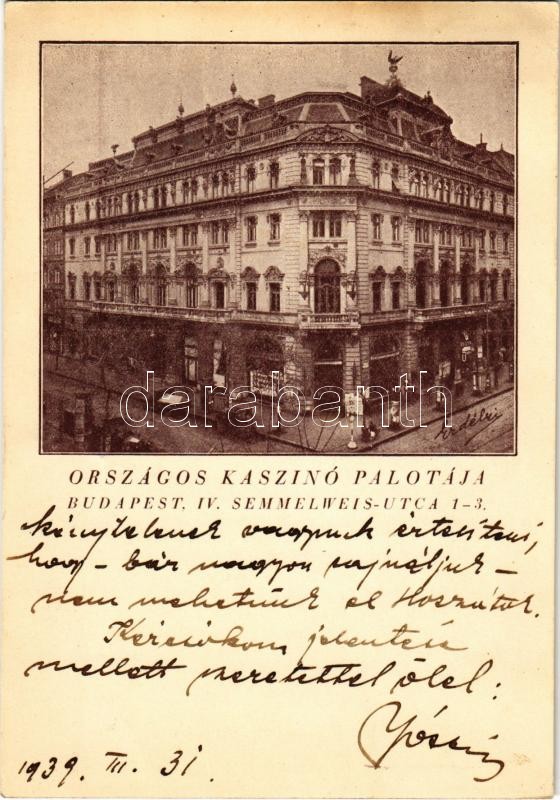 darabanth
Erdélyi
ORSZÁGOS KASZINÓ PALOTÁJA
BUDAPEST, IV. SEMMELWEIS-UTCA 1–3.
kénytelenek vagyunk értesíteni,
hogy – bár nagyon sajnáljuk –
nem mehetünk el Hozzátok.
jelentése
mellett szeretettel ölel:
1939. III. 31.